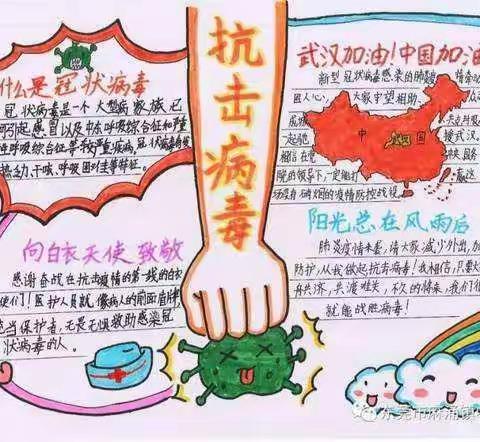 什么是冠状病毒
冠状病毒是一个大型病毒家族,已
可引起感冒以及中东呼吸综合征和严重
性呼吸综合征等较严重疾病,冠状病毒
发热、乏力、干咳、呼吸困难等特征。
向白衣天使致敬
感谢奋战在抗击疫情的第一线的白衣
使们!医护人员就像病人的前面盾牌,
当保护者,无畏无惧救助感染冠
状病毒的人。
抗击病毒
武汉加油!中国加油
新型冠状病毒感染的肺炎
国人心,大家守望相助,
一起
援武汉。
相信在党 中央国务
院的领导下,一定能打赢这
场没有硝烟的疫情防控战役。
中国
武汉
阳光总在风雨后
肺炎疫情来袭,请大家减少外出,加
防护,从我做起抗击病毒!我相信,只要大
舟共济,共渡难关,不久的将来,我们
就能战胜病毒!
东莞市麻涌镇